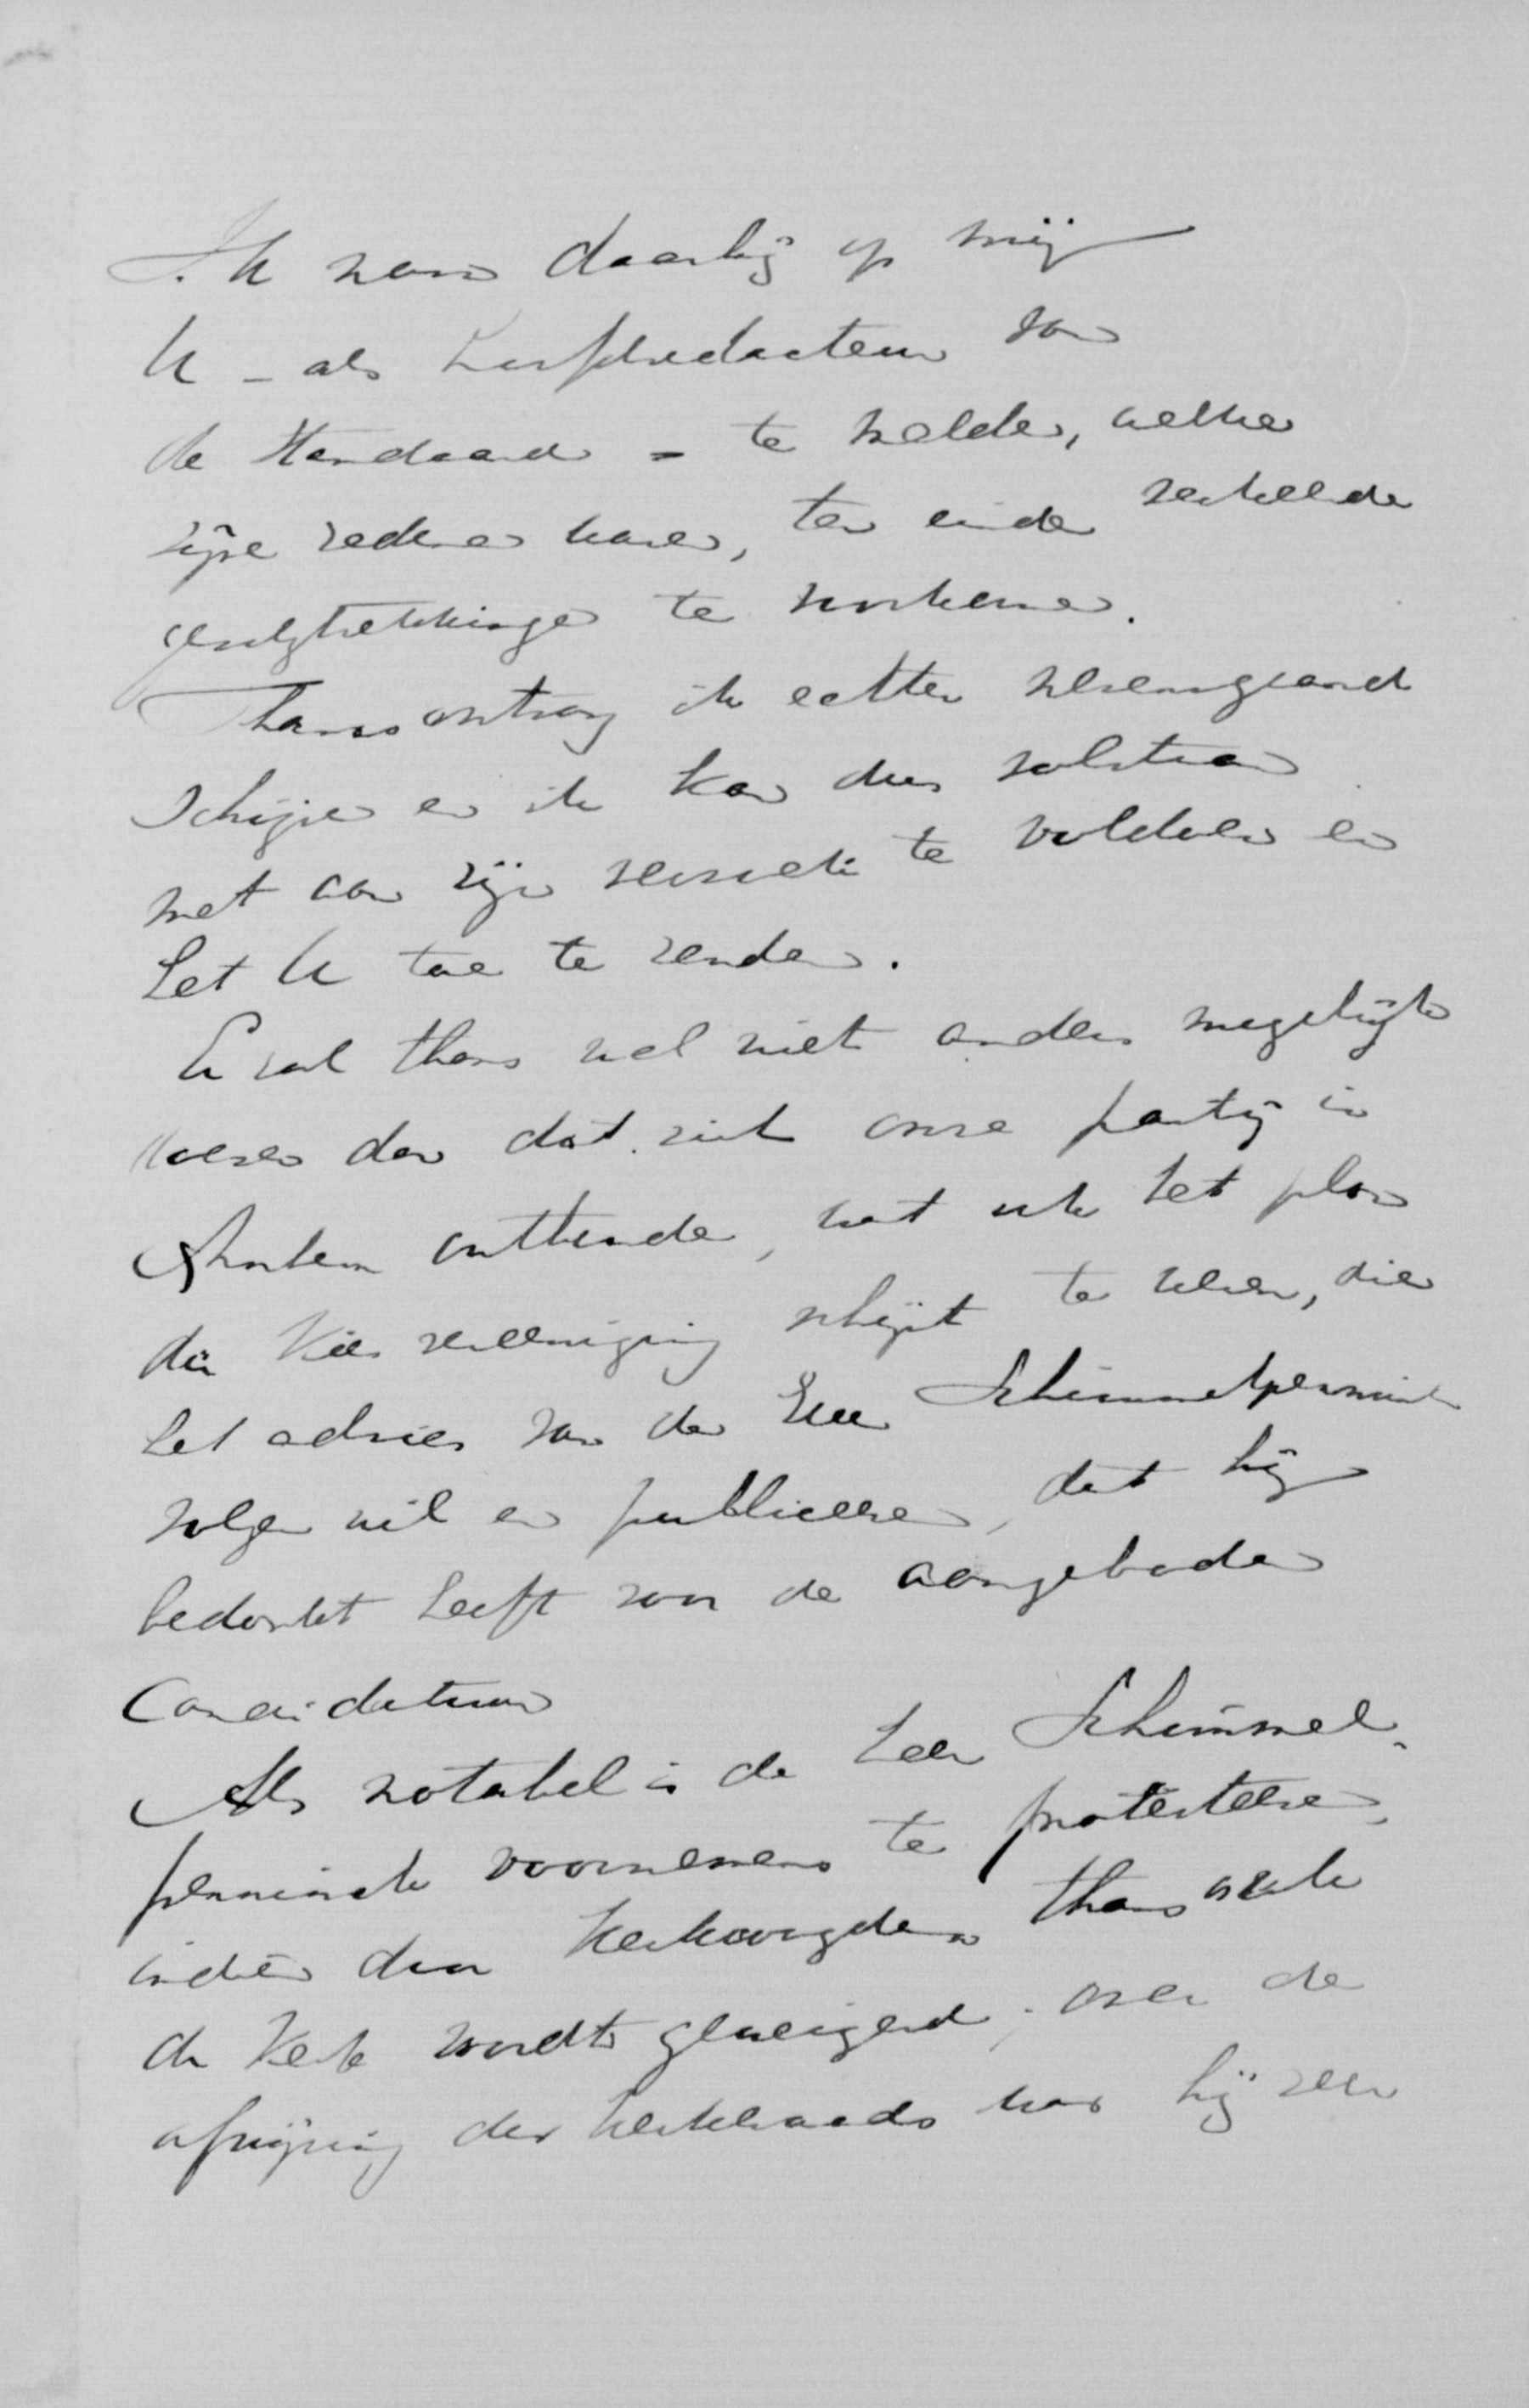 Ik nam daarbij op mij
U – als hoofdredacteur van
de Standaard – te melden, welke
zijne redenen waren, ten einde verkeerde
gevolgtrekkingen te voorkomen.
Thans ontvang ik echter nevensgaand
schrijven en ik kan dus volstaan
met aan zijn verzoek te voldoen en
het U toe te zenden.
Er zal thans wel niet anders mogelijk
wezen dan dat zich onze partij in
Arnhem onthoude, wat ook het plan
der Kiesvereeniging schijnt te wezen, die
het advies van den Heer Schimmelpenninck
volgen wil en publiceeren, dat hij
bedankt heeft voor de aangeboden
Candidatuur
Als notabel is de heer Schimmel-
penninck voornemens te protesteeren,
indien door Kerkvoogden thans ook
de Kerk wordt geweigerd; over de
afwijzing des kerkeraads was hij zeer